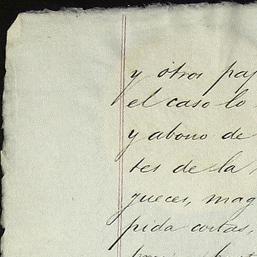 y otros pa
el caso lo
y abono de
tes de la
gueces, mag
pida costas,